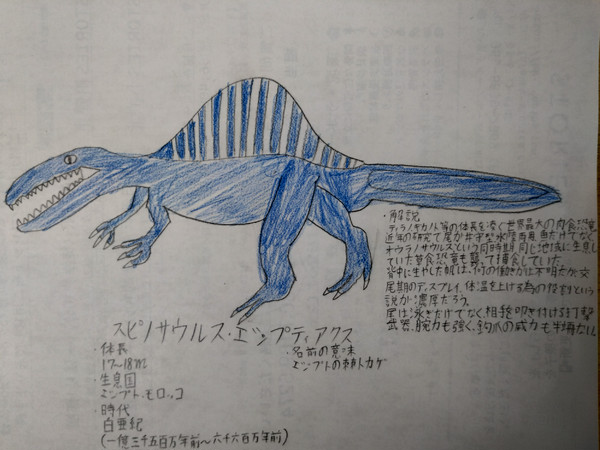 スピノサウルス・エジプティアクス
・体長
17〜18m
・生息国
エジプト・モロッコ
・時代
白亜紀
(一億三千五百万年前〜六千六百万年前)
・名前の意味
エジプトの棘トカゲ
・解説
ティラノ ギガノ等の体長を凌ぐ世界最大の肉食恐竜
近年の研究で尾が
オウラノサウルスという同時期、同じ地域に生息し
ていた草食恐竜も襲って捕食していた。
背中に生やした帆は、何の働きかは不明だが、交
尾期のディスプレイ、体温を上げる為の役割という
説が濃厚だろう。
尾は泳ぎだけでなく、相手を叩き付ける打撃
武器、腕力も強く、鉤爪の威力も半端ない。